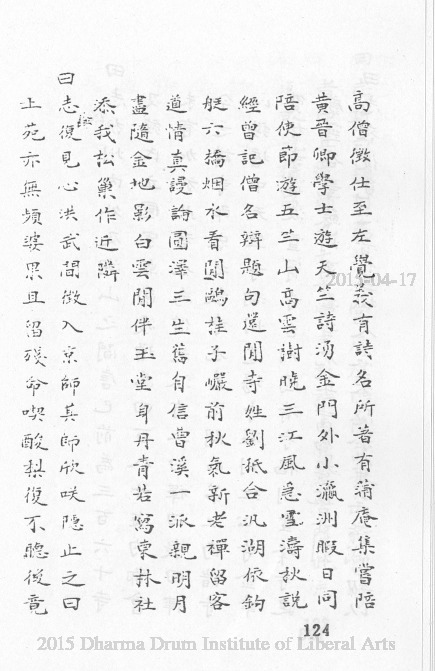 高僧徵仕至左覺義有詩名所著有蒲庵集嘗陪
黃晉卿學士遊天竺詩湧金門外小瀛洲暇日同
陪使節遊五竺山高雲樹曉三江風急雪濤秋說
經曾記僧名辯題句還聞寺姓劉秪合汎湖依釣
艇六橋烟水看閒鷗桂子巖前秋氣新老禪留客
道情真謾論圓澤三生舊自信曹溪一派親明月
盡隨金地影白雲閒伴玉堂身丹青若寫東林社
添我松巢作近隣
曰志復見心洪武間徵入京師其師欣咲隐止之曰
上苑亦無頻婆果且留殘命喫酸梨復不聽後竟
2015-04-17
124
2015 Dharma Drum Institute of Liberal Arts